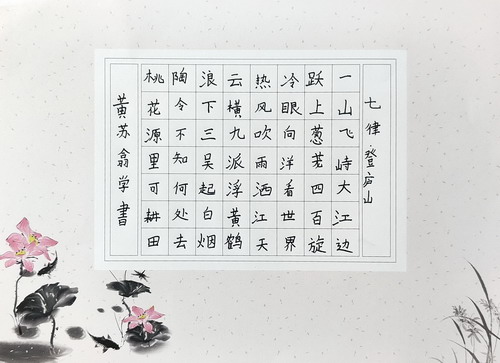 七律·登庐山
一山飞峙大江边
跃上葱茏四百旋
冷眼向洋看世界
热风吹雨洒江天
云横九派浮黄鹤
浪下三吴起白烟
陶令不知何处去
桃花源里可耕田
黄苏翕学書